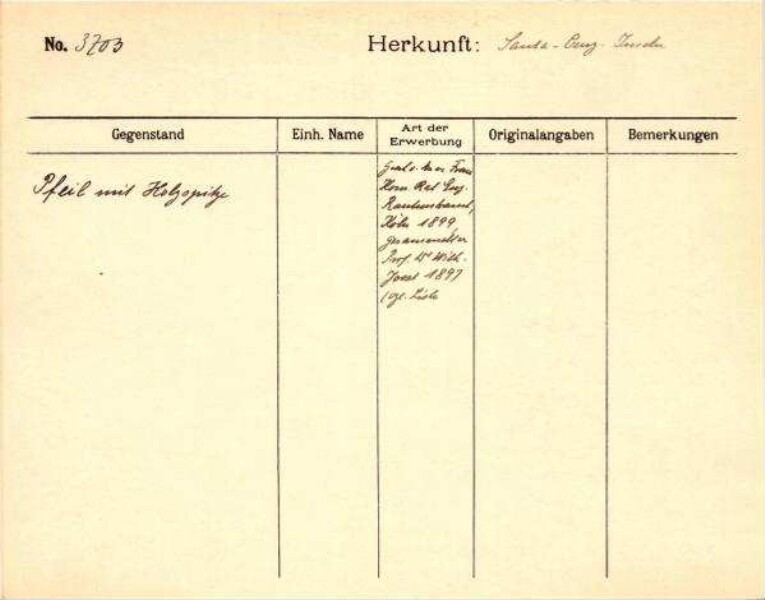 No. 3703 Herkunft: Santa-Cruz-Inseln
Gegenstand Einh. Name Art der Erwerbung Originalangaben Bemerkungen
Pfeil mit Holzspitze
Gesch. v. Frau
Kom. Rat Eug.
Rautenstrauch,
Köln 1899,
gesammelt v.
Prof. Dr Wilh.
Joest 1897
(vgl. Liste